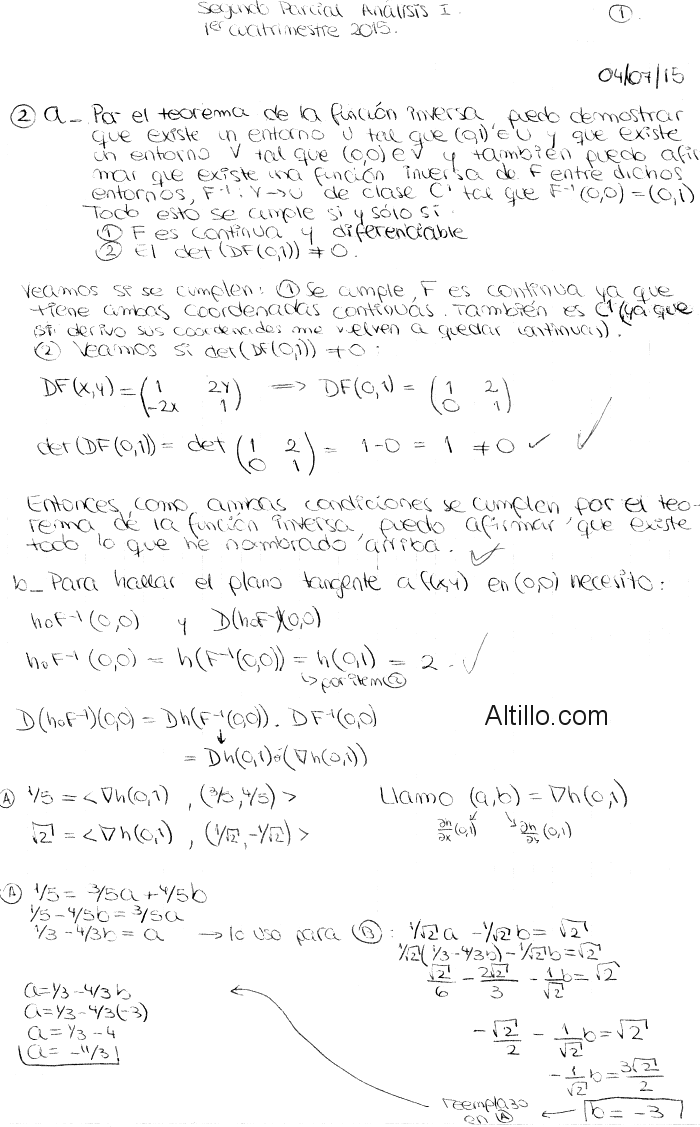 Segundo Parcial Análisis I.
1er cuatrimestre 2015.
①
04/07/15
② a_ Por el teorema de la función inversa, puedo demostrar
que existe un entorno U tal que (0,1) ∈ U y que existe
un entorno V tal que (0,0) ∈ V y también puedo afir
mar que existe una función inversa de F entre dichos
entornos, F⁻¹: V→U de clase C¹ tal que F⁻¹(0,0) = (0,1)
Todo esto se cumple si y sólo si:
① F es continua y diferenciable
② El det (DF(0,1)) ≠ 0.
Veamos si se cumplen: ① Se cumple, F es continua ya que
tiene ambas coordenadas continuas. También es C¹ (ya que
si derivo sus coordenadas me vuelven a quedar continuas).
② Veamos si det(DF(0,1)) ≠ 0:
DF(x,y) = (1 2y ; -2x 1) ⟹ DF(0,1) = (1 2 ; 0 1)
det(DF(0,1)) = det (1 2 ; 0 1) = 1-0 = 1 ≠ 0 ✓ ✓
Entonces, como ambas condiciones se cumplen por el teo-
rema de la función inversa, puedo afirmar que existe
todo lo que he nombrado arriba. ✓
b_ Para hallar el plano tangente a f(x,y) en (0,0) necesito:
h∘F⁻¹(0,0) y D(h∘F⁻¹)(0,0)
h∘F⁻¹(0,0) = h(F⁻¹(0,0)) = h(0,1) = 2. ✓
↳ por item ⓐ
D(h∘F⁻¹)(0,0) = Dh(F⁻¹(0,0)). DF⁻¹(0,0)
Altillo.com
= Dh(0,1) ó (∇h(0,1))
Ⓐ 1/5 = <∇h(0,1), (3/5, 4/5)> Llamo (a,b) = ∇h(0,1)
√2 = <∇h(0,1), (1/√2, -1/√2)> ∂h/∂x(0,1) ∂h/∂y(0,1)
Ⓐ 1/5 = 3/5a + 4/5b
1/5 - 4/5b = 3/5a
1/3 - 4/3b = a → lo uso para Ⓑ: 1/√2a - 1/√2b = √2
1/√2(1/3 - 4/3b) - 1/√2b = √2
√2/6 - 2√2/3 - 1/√2b = √2
a = 1/3 - 4/3b
a = 1/3 - 4/3(-3)
a = 1/3 - 4
a = -11/3
-√2/2 - 1/√2b = √2
-1/√2b = 3√2/2
reemplazo
en Ⓐ ← b = -3